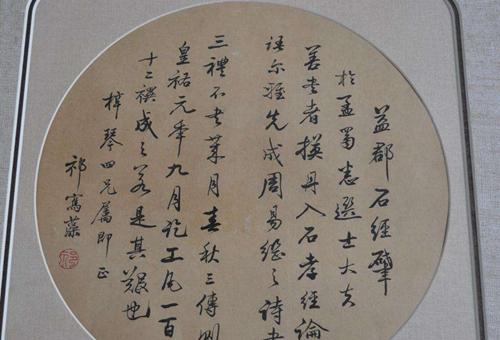 益郡石經肇
於孟蜀悉選士大夫
善書者摸丹入石孝經論
語尔雅先成周易繼之詩書
三禮不書某月春秋三傳則
皇祐元年九月訖工凡一百
十二禩成之若是其艱也
梓琴四兄屬即正
祁寯藻